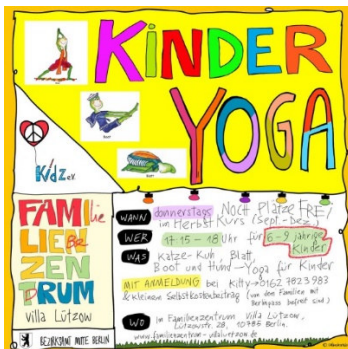 KiNDER
YOGA
Kidz e.V.
FAMilie
LIEBE
ZEN
TRUM
Villa Lützow
BEZIRKSAMT MITTE BERLIN
WANN donnerstags NOCH PLÄTZE FREI
im Herbst Kurs (Sept.- Dez.)
WER 17 15 - 18 Uhr für 6-9 jährige Kinder
WAS Katze-Kuh Blatt
Boot und Hund - Yoga für Kinder
MIT ANMELDUNG bei Kitty 0162 7823 983
& kleine Selbstkostenbeitrag (von dem Familien mit
Berlinpass befreit sind)
WO im Familienzentrum Villa Lützow,
Lützowstr. 28, 10785 Berlin.